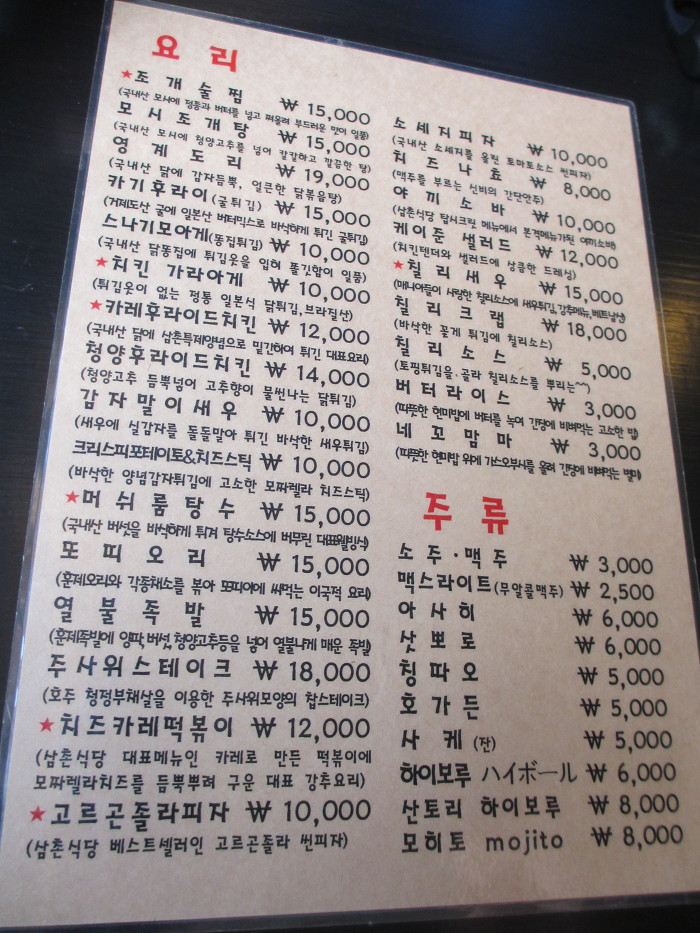 요리
★조개술찜 ₩ 15,000
(국내산 모시에 정종과 버터를 넣고 쪄올려 부드러운 맛이 일품)
모시조개탕 ₩ 15,000
(국내산 모시에 청양고추를 넣어 칼칼하고 깔끔한 탕)
영계도리 ₩ 19,000
(국내산 닭에 감자듬뿍, 얼큰한 닭볶음탕)
카기후라이(굴튀김) ₩ 15,000
(거제도산 굴에 일본산 버터믹스로 바삭하게 튀긴 굴튀김)
스나기모아게(똥집튀김) ₩ 10,000
(국내산 닭똥집에 튀김옷을 입혀 쫄깃함이 일품)
★치킨 가라아게 ₩ 10,000
(튀김옷이 없는 정통 일본식 닭튀김,브라질산)
★카레후라이드치킨 ₩ 12,000
(국내산 닭에 삼촌특제양념으로 밑간하여 튀긴 대표요리)
청양후라이드치킨 ₩ 14,000
(청양고추 듬뿍넣어 고추향이 물씬나는 닭튀김)
감자말이새우 ₩ 10,000
(새우에 실감자를 돌돌말아 튀긴 바삭한 새우튀김)
크리스피포테이토&치즈스틱 ₩ 10,000
(바삭한 양념감자튀김에 고소한 모짜렐라 치즈스틱)
★머쉬룸탕수 ₩ 15,000
(국내산 버섯을 바삭하게 튀겨 탕수소스에 버무린 대표웰빙식)
또띠오리 ₩ 15,000
(훈제오리와 각종채소를 볶아 또띠아에 싸먹는 이국적 요리)
열불족발 ₩ 15,000
(훈제족발에 양파,버섯,청양고추등을 넣어 열불나게 매운 족발)
주사위스테이크 ₩ 18,000
(호주 청정부채살을 이용한 주사위모양의 찹스테이크)
★치즈카레떡볶이 ₩ 12,000
(삼촌식당 대표메뉴인 카레로 만든 떡볶이에
모짜렐라치즈를 듬뿍뿌려 구운 대표 강추요리)
★고르곤졸라피자 ₩ 10,000
(삼촌식당 베스트셀러인 고르곤졸라 씬피자)
소세지피자 ₩ 10,000
(국내산 소세지를 올린 토마토소스 씬피자)
치즈나쵸 ₩ 8,000
(맥주를 부르는 신비의 간단안주)
야끼소바 ₩ 10,000
(삼촌식당 탑시크릿 메뉴에서 본격메뉴가된 야끼소바)
케이준 샐러드 ₩ 12,000
(치킨텐더와 샐러드에 상큼한 드레싱)
★칠리새우 ₩ 15,000
(매니아들이 사랑한 칠리소스에 새우튀김,강추메뉴,베트남산)
칠리크랩 ₩ 18,000
(바삭한 꽃게 튀김에 칠리소스)
칠리소스 ₩ 5,000
(토핑튀김을 골라 칠리소스를 뿌리는^^)
버터라이스 ₩ 3,000
(따뜻한 현미밥에 버터를 녹여 간장에 비벼먹는 고소한 밥)
네꼬맘마 ₩ 3,000
(따뜻한 현미밥 위에 가스오부시를 올려 간장에 비벼먹는 별미)
주류
소주·맥주 ₩ 3,000
맥스라이트(무알콜맥주) ₩ 2,500
아사히 ₩ 6,000
삿뽀로 ₩ 6,000
칭따오 ₩ 5,000
호가든 ₩ 5,000
사케(잔) ₩ 5,000
하이보루 ハイボール ₩ 6,000
산토리 하이보루 ₩ 8,000
모히토 mojito ₩ 8,000